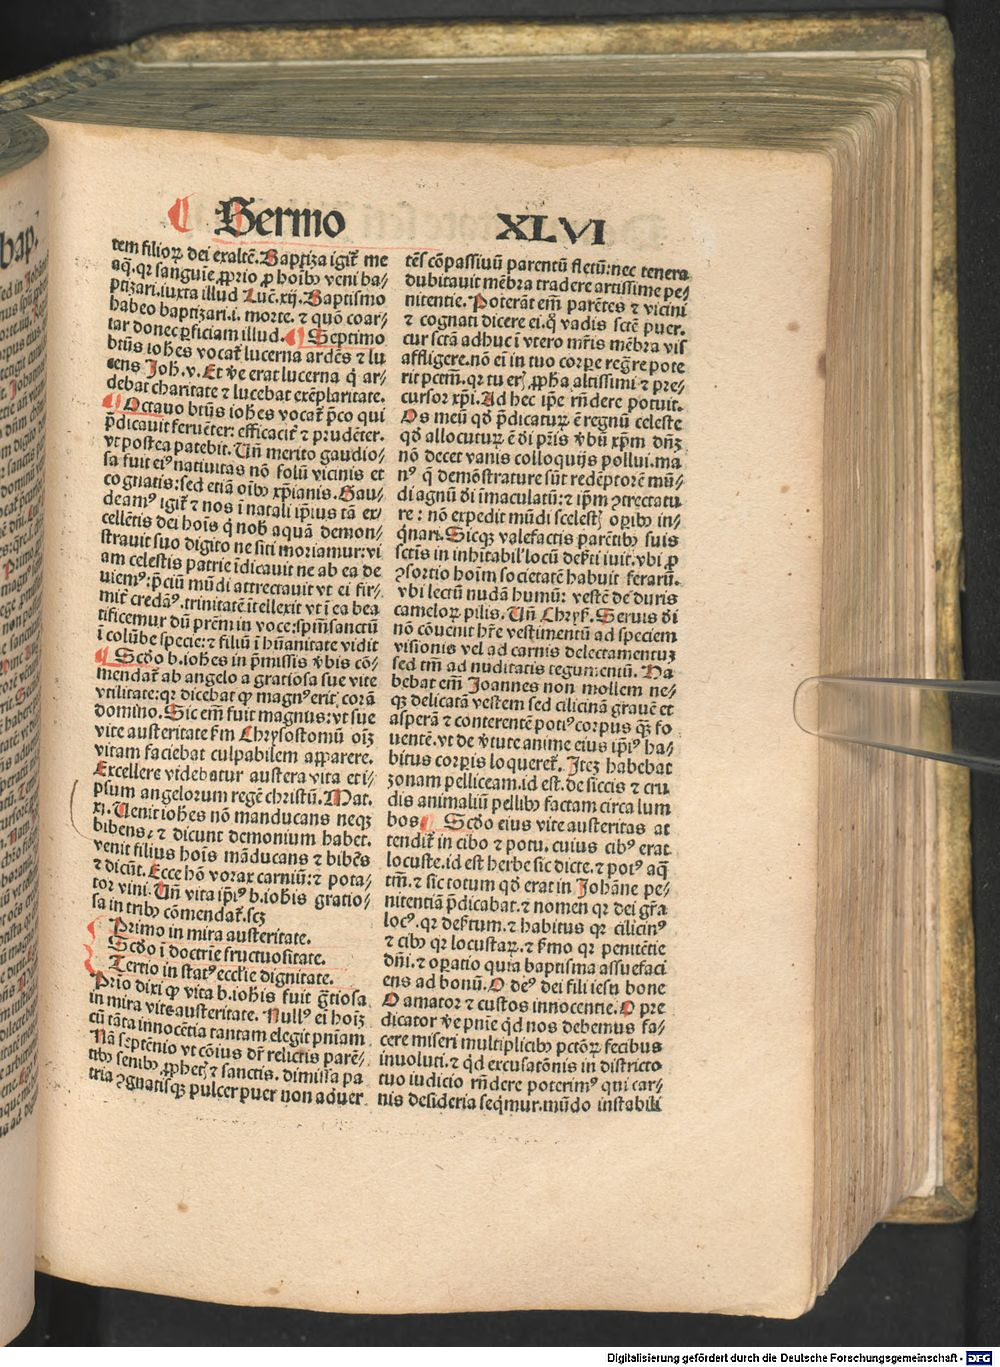 Sermo XLVI
tem filioꝝ dei exaltē. Baptiza igit̄ me
aq̄. qr sanguīe ꝓprio ꝓ hoībꝰ veni ba⸗
ptizari. iuxta illud Luē. xij. Baptismo
habeo baptizari. i. morte. ⁊ quō coar⸗
tar donec ꝑficiam illud. ¶ Septimo
btūs iohēs vocat̄ lucerna ardēs ⁊ lu
cens Joh. v. Et v̄e erat lucerna q̇ ar⸗
debat charitate ⁊ lucebat exēplaritate.
¶ Octauo btūs iohēs vocat̄ p̄co qui
p̄dicauit feruēter: efficacit̄ ⁊ prudēter.
vt postea patebit. Un̄ merito gaudio⸗
sa fuit eiꝰ natiuitas nō solū vicinis et
cognatis: sed etiā oībꝰ xp̄ianis. Gau⸗
deamꝰ igit̄ ⁊ nos i natali ip̄ius tā ex⸗
cellētis dei hoīs q̇ nob̄ aquā demon⸗
strauit suo digito ne siti moriamur: vi
am celestis patrie īdicauit ne ab ea de
uiemꝰ: p̄ciū mūdi attrectauit vt ei fir⸗
mit̄ credāꝰ. trinitatē ītellexit vt ī ea bea
tificemur dū pr̄em in voce: sp̄m sanctū
ī colūbe specie: ⁊ filiū ī hūanitate vidit
¶ Scd̄o b. iohēs in p̄missis v̄bis cō⸗
mendat̄ ab angelo a gratiosa sue vite
vtilitate: qr dicebat ꝙ magnꝰ erit corā
domino. Sic em̄ fuit magnus: vt sue
vite austeritate ẜm Chrysostomū oīꝫ
vitam faciebat culpabilem apparere.
Excellere videbatur austera vita eti⸗
psum angelorum regē christū. Mat.
xj. Uenit iohēs nō manducans neqꝫ
bibens, ⁊ dicunt demonium habet.
venit filius hoīs māducans ⁊ bibēs
⁊ dicūt. Ecce hō vorax carniū: ⁊ pota⸗
tor vini. Un̄ vita ip̄iꝰ b. iohīs gratio⸗
sa in tribꝰ cōmendat̄. scꝫ
Primo in mira austeritate.
Scd̄o ī doctrīe fructuositate.
Tertio in statꝰ eccl̄ie dignitate.
Prīo dixi ꝙ vita b. iohīs fuit gr̄tiosa
in mira vite austeritate. Nullꝰ ei hoīꝫ
cū tāta innocētia tantam elegit pn̄iam
Nā septēnio vt cōius dr̄ relictis parē⸗
tibꝰ senibꝰ, ꝓphetꝫ ⁊ sanctis. dimissa pa
tria ꝯgnatisqꝫ pulcer puer non aduer
tēs cōpassiuū parentū fletū: nec tenera
dubitauit mēbra tradere artissime pe⸗
nitentie. Poterāt em̄ parētes ⁊ vicini
⁊ cognati dicere ei. q̊ vadis sctē puer.
cur sctā adhuc ī vtero mr̄is mēbra vis
affligere. nō ei in tuo corꝑe reg̅re pote
rit pctm̄. qr tu erꝭ ꝓph̄a altissimi ⁊ pre⸗
cursor xp̄i. Ad hec ip̄e rn̄dere potuit.
Os meū qd̄ p̄dicaturꝫ ē regnū celeste
qd̄ allocuturꝫ ē d̄i pr̄is v̄bū xp̄m dn̄ꝫ
nō decet vanis colloquijs pollui. ma
nꝰ q̄ demōstrature sūt redēptorē mū⸗
di agnū d̄i īmaculatū: ⁊ ip̄m ꝯtrectatu
re: nō expedit mūdi scelestꝫ oꝑibꝰ in⸗
q̇nari. Sicqꝫ valefactis parētibꝰ suis
sctīs in inhabitabil̕ locū deẜti iuit. vbi ꝓ
ꝯsortio hoīm societatē habuit ferarū.
vbi lectū nudā humū: vestē de duris
cameloꝝ pilis. Un̄ Chrys. Seruis d̄i
nō cōuenit hr̄e vestimentū ad speciem
visionis vel ad carnis delectamentuꝫ
sed tm̄ ad nuditatis tegumentū. Ha
bebat em̄ Joannes non mollem ne⸗
qꝫ delicatā vestem sed cilicinā grauē et
asperā ⁊ conterentē potiꝰ corpus qꝫ̄ fo
uentē. vt de v̄tute anime eius ip̄iꝰ ha⸗
bitus corꝑis loqueret̄. Iteꝫ habebat
zonam pelliceam. id est. de siccis ⁊ cru
dis animaliū pellibꝰ factam circa lum
bos. ¶ Scd̄o eius vite austeritas at
tendit̄ in cibo ⁊ potu. cuius cibꝰ erat
locuste. id est herbe sic dicte. ⁊ potꝰ aq̄
tm̄. ⁊ sic totum qd̄ erat in Johāne pe⸗
nitentiā p̄dicabat. ⁊ nomen qr dei gr̄a
locꝰ. qr deẜtum. ⁊ habitus qr cilicinꝰ
⁊ cibꝰ qr locustaꝝ. ⁊ ẜmo qr penitētie
dn̄i. ⁊ oꝑatio quia baptisma assuefaci
ens ad bonū. O deꝰ dei fili iesu bone
O amator ⁊ custos innocentie. O pre
dicator v̄e pn̄ie qd̄ nos debemus fa⸗
cere miseri multiplicibꝰ pctōꝝ fecibus
inuoluti. ⁊ qd̄ excusatōnis in districto
tuo iudicio rn̄dere poterimꝰ qui car⸗
nis desideria seq̄mur. mūdo instabili
Digitalisierung gefördert durch die Deutsche Forschungsgemeinschaft - DFG